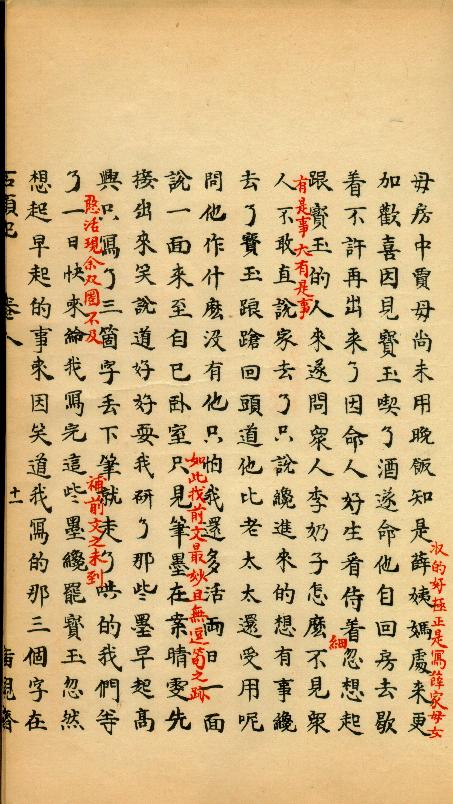 母房中賈母尚未用晚飯知是薛姨媽處來更
收的好極正是寫薛家母女
加歡喜因見寶玉喫了酒遂命他自回房去歇
着不許再出來了因命人好生看侍着忽想起
細
跟寶玉的人來遂問衆人李奶子怎麼不見衆
有是事大有是事
人不敢直說家去了只說纔進來的想有事纔
去了寶玉踉蹌回頭道他比老太太還受用呢
問他作什麽沒有他只怕我還多活兩日一面
如此找前文最妙且無逗筍之跡
說一面來至自已卧室只見筆墨在案晴雯先
接出來笑說道好好耍我研了那些墨早起高
興只寫了三箇字丢下筆就走了哄的我們等
憨活現余双圈不及
補前文之未到
了一日快來給我寫完這些墨纔罷寶玉忽然
想起早起的事來因笑道我寫的那三個字在
石頭記 卷八 十一 脂硯齋